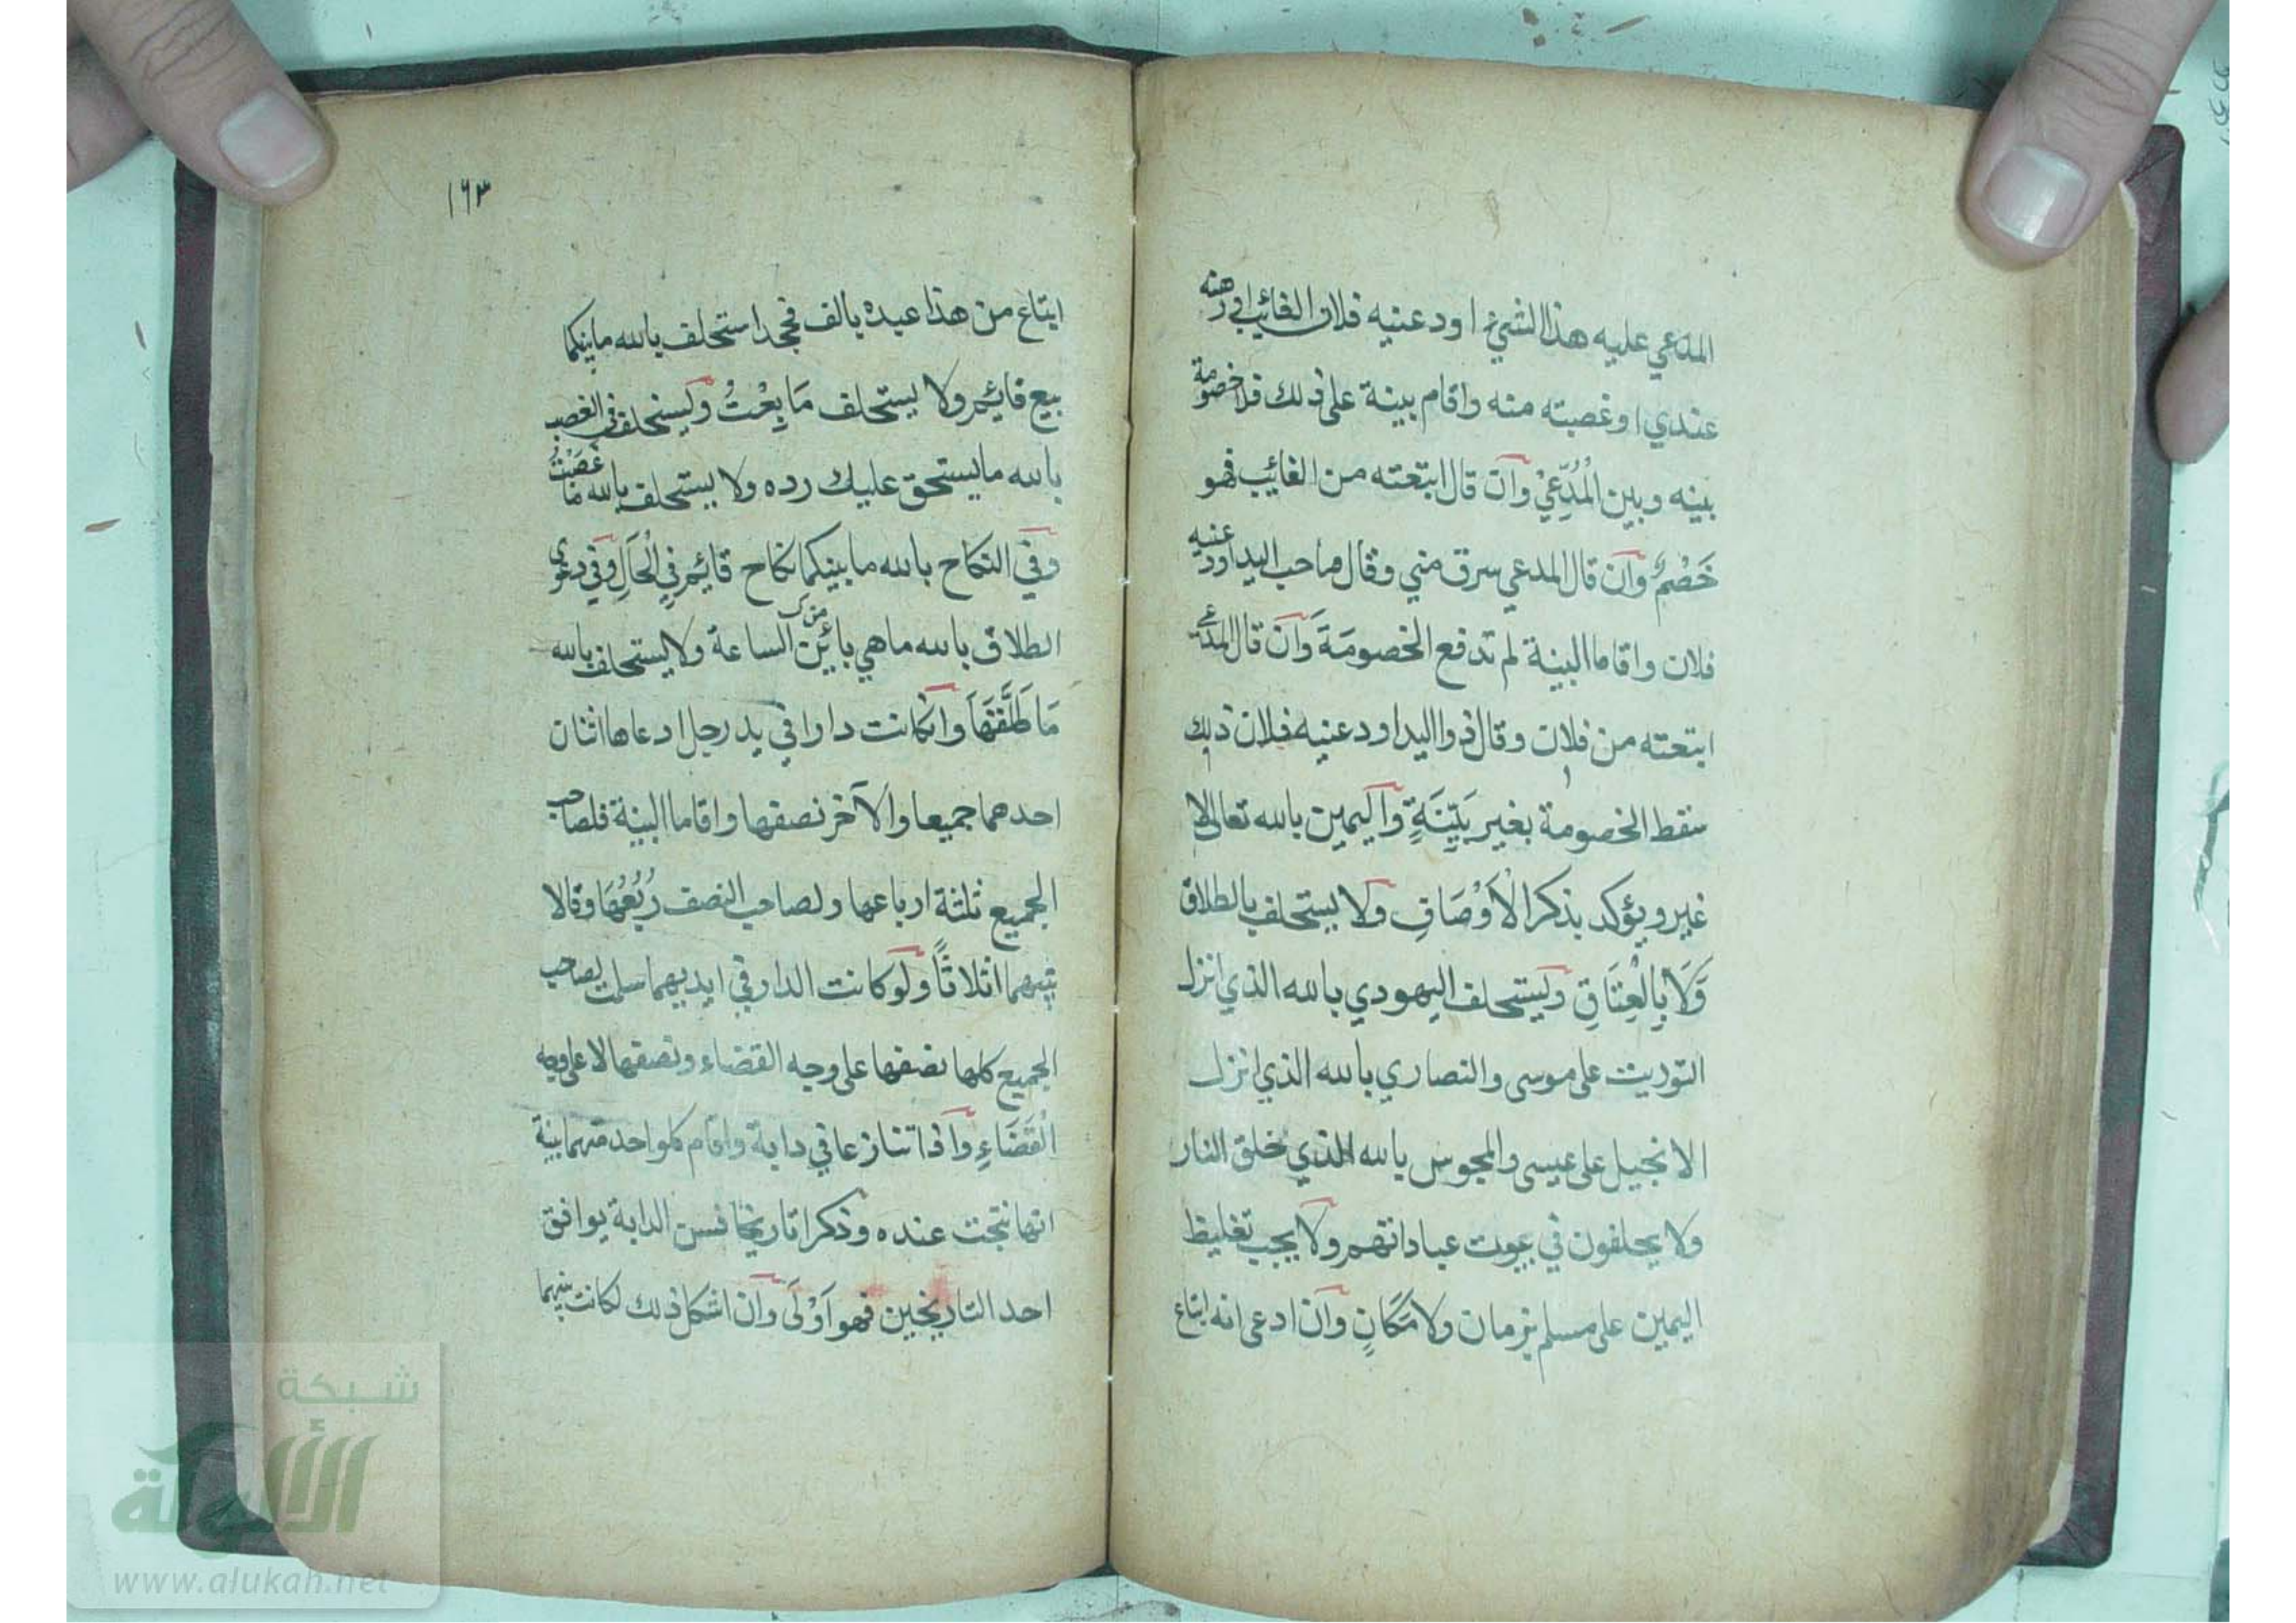 المدعي عليه هذا الشيئ اودعنيه فلان الغائب او رهنه
عندي او غصبته منه واقام بينة على ذلك فلا خصومة
بينه وبين الْمُدَّعِيْ وان قال ابتعته من الغائب فهو
خَصْمٌ وان قال المدعي سرق مني وقال صاحب اليد اودعنيه
فلان واقاما البينة لم تدفع الخصومَةَ وان قال المدعي
ابتعته من فلان وقال ذوا اليد اودعنيه فلان ذلك
سقط الخصومة بغير بَيِّنَةٍ واليمين بالله تعالى لا
غير ويؤكد بذكر الْاَوْصَافِ ولا يستحلف بالطلاق
وَلَا بِالْعِتَاقِ ويستحلف اليهودي بالله الذي انزل
التوريت على موسى والنصاري بالله الذي انزل
الانجيل على عيسى والمجوس بالله الذي خلق النار
ولا يحلفون في بيوت عباداتهم ولا يجب تغليظ
اليمين على مسلم بزمان ولا مَكَانٍ وان ادعى انه ابتاع
١٦٣
ابتاع من هذا عبده بالف فجحد استحلف بالله ما بينكما
بيع قائم ولا يستحلف مَا بِعْتُ ويستحلف في الغصب
بالله ما يستحق عليك رده ولا يستحلف بالله ما غَصَبْتُ
وفي النكاح بالله ما بينكما نكاح قائم في الْحَالِ وفي دعوى
الطلاق بالله ما هي بائن منك الساعة ولا يستحلف بالله
مَا طَلَّقْتَهَا وان كانت دارا في يد رجل ادعاها اثنان
احدهما جميعا والآخر نصفها واقاما البينة فلصاحب
الجميع ثلثة ارباعها ولصاحب النصف رُبُعُهَا وقالا
بينهما اثلاثًا ولو كانت الدار في ايديهما سلمت لصاحب
الجميع كلها نصفها على وجه القضاء ونصفها لا على وجه
الْقَضَاءِ واذا تنازعا في دابة واقام كلواحد منهما بينة
انها نتجت عنده وذكرا تاريخا فسن الدابة يوافق
احد التاريخين فهو اَوْلَى وان اشكل ذلك لكانت بينهما
شبكة
الألوكة
www.alukah.net